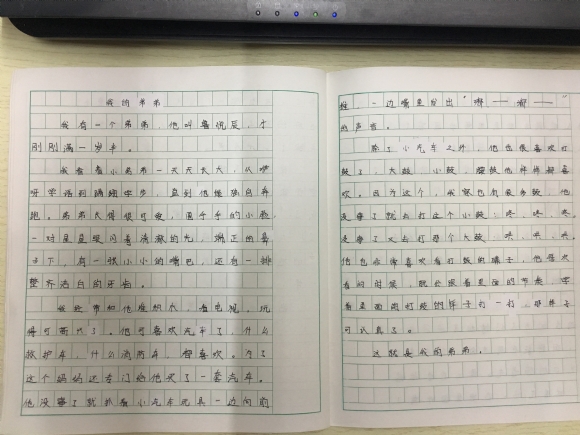 我的弟弟
我有一个弟弟，他叫 辰，才
刚刚满一岁半。
我看着小弟弟一天天长大，从咿
呀学语到蹒跚学步，直到他能独自奔
跑。弟弟长得很可爱，  的小脸
一对星星眼闪着清澈的光，端正的鼻
子下，有一张小小的嘴巴，还有一排
整齐洁白的牙齿。
我 带他堆积木，看电视，玩
得可 了。他可喜欢玩车了，什么
救护车，什么消防车，都喜欢。为了
这个妈妈还专门给他买了一套汽车。
他没事了就扒着小汽车玩具一边向前
推，一边嘴里发出“嘟——嘟——”
的声音。
除了小汽车之外，他也很喜欢打
鼓了，大鼓，小鼓， 鼓他样样都喜
欢。因为这个，我家也有很多鼓，他
没事了就去打这个小鼓：咚，咚，咚。
没事了又去打那个大鼓 咚，咚，咚。
他也非常喜欢看打鼓的 子，他每次
看的时候，就会跟着里面的节奏，学
着里面打鼓的样子打一打，那样子
可认真了。
这就是我的弟弟。